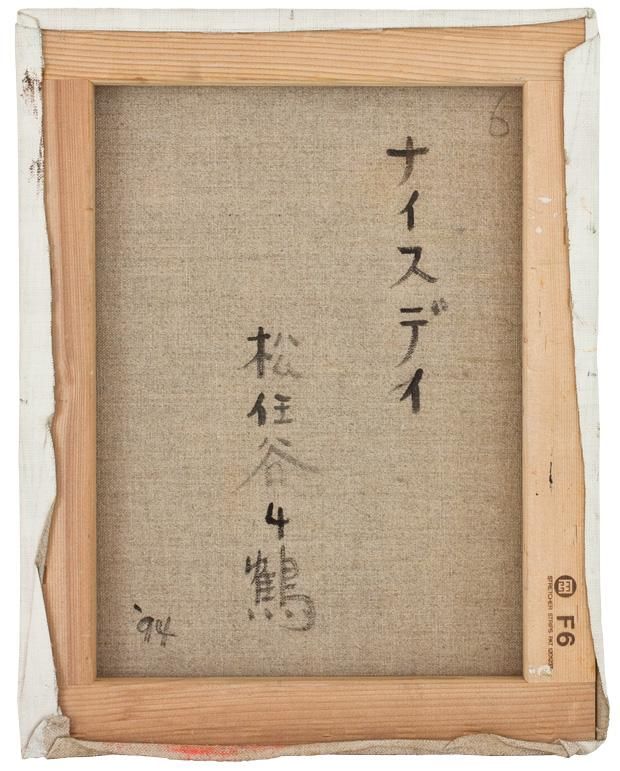 6
ナイスデイ
松任谷4鶴
'94
F6
STRETCHER STRIPS PAT.